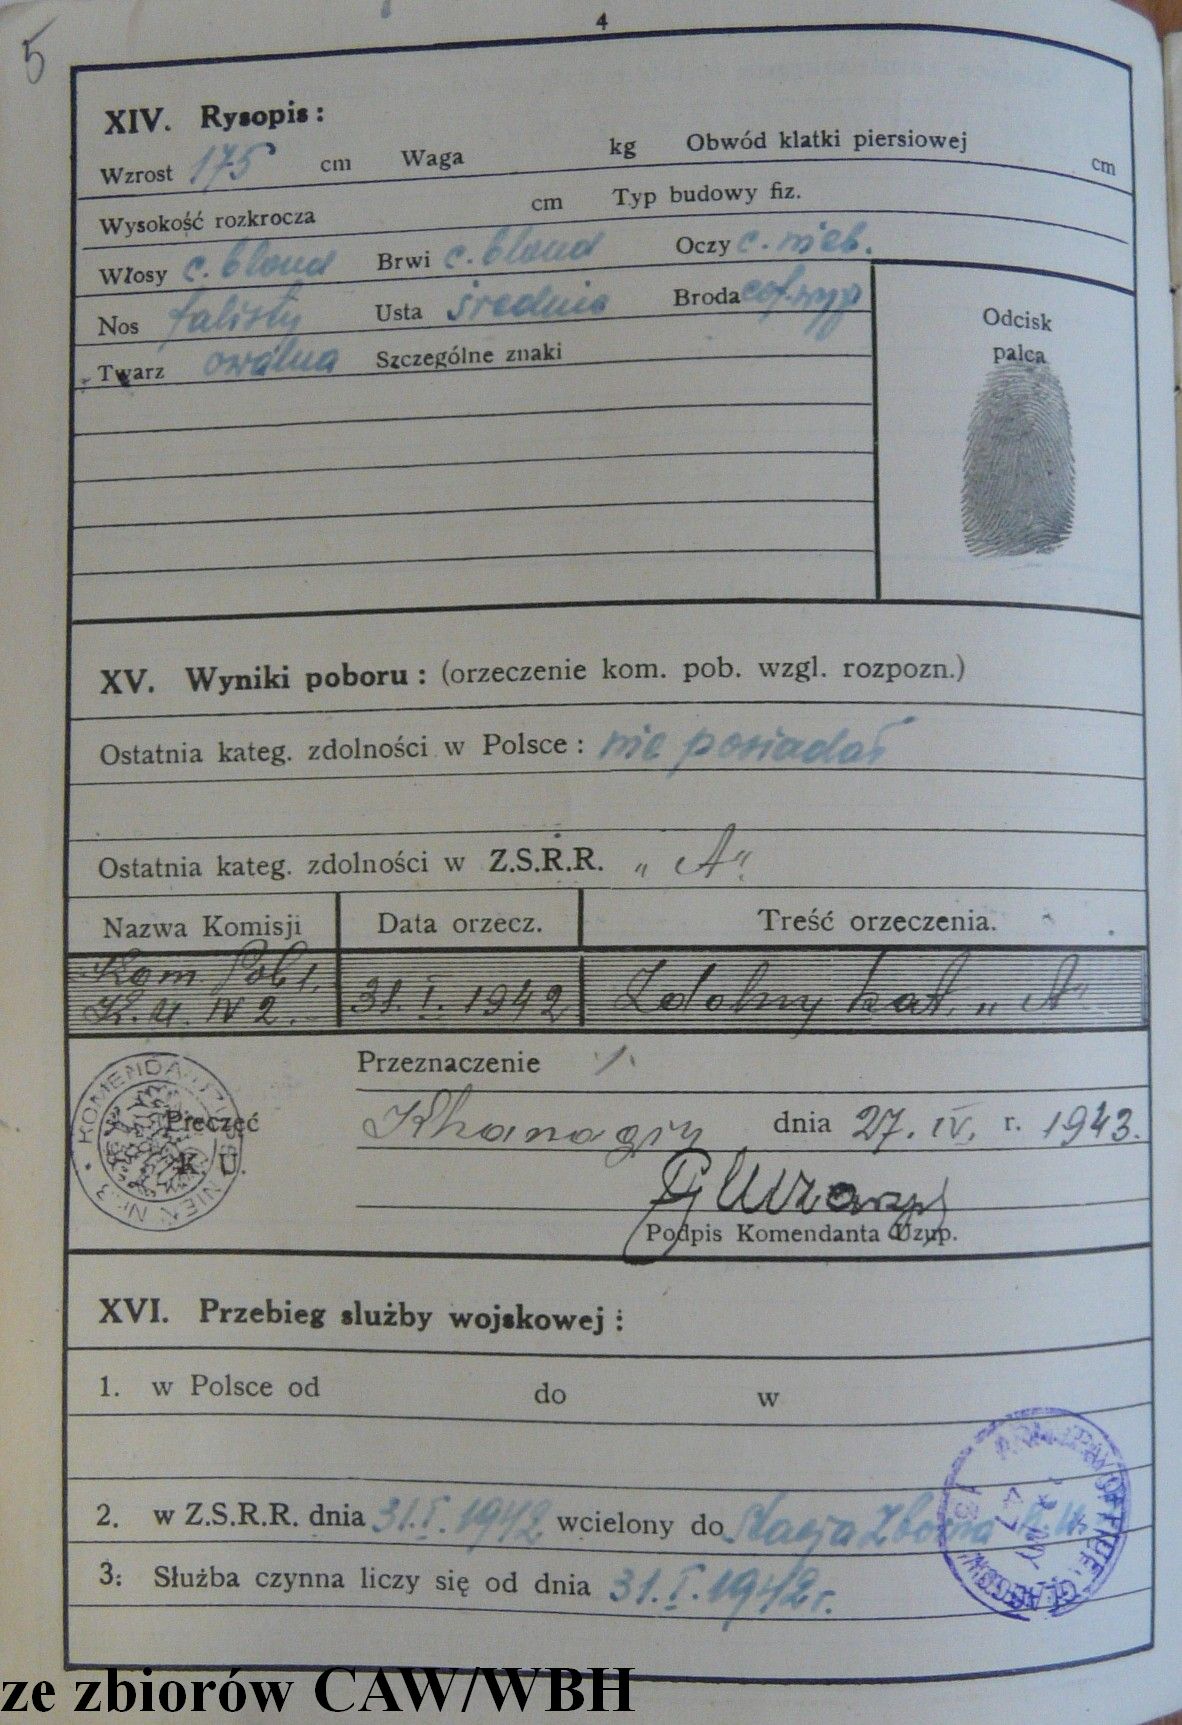 4
5
XIV. Rysopis :
Wzrost 175 cm Waga kg Obwód klatki piersiowej cm
Wysokość rozkrocza cm Typ budowy fiz.
Włosy c. blond Brwi c. blond Oczy c. nieb.
Nos falisty Usta średnie Broda
Twarz owalna Szczególne znaki
Odcisk
palca
XV. Wyniki poboru : (orzeczenie kom. pob. wzgl. rozpozn.)
Ostatnia kateg. zdolności w Polsce : nie posiadał
Ostatnia kateg. zdolności w Z.S.R.R. „A"
Nazwa Komisji Data orzecz. Treść orzeczenia.
Kom. Pob 1.
K. U. IV 2. 31. I. 1942 Zdolny kat. „A"
Przeznaczenie
Pieczęć
K. U.
KOMENDA UZUPEŁNIEŃ Nr. 3
Khanaqin dnia 27. IV. r. 1943.
Podpis Komendanta Uzup.
XVI. Przebieg służby wojskowej :
1. w Polsce od do w
2. w Z.S.R.R. dnia 31.I.1942 wcielony do Stacja Zborna K.U.
3. Służba czynna liczy się od dnia 31.I.1942 r.
ze zbiorów CAW/WBH